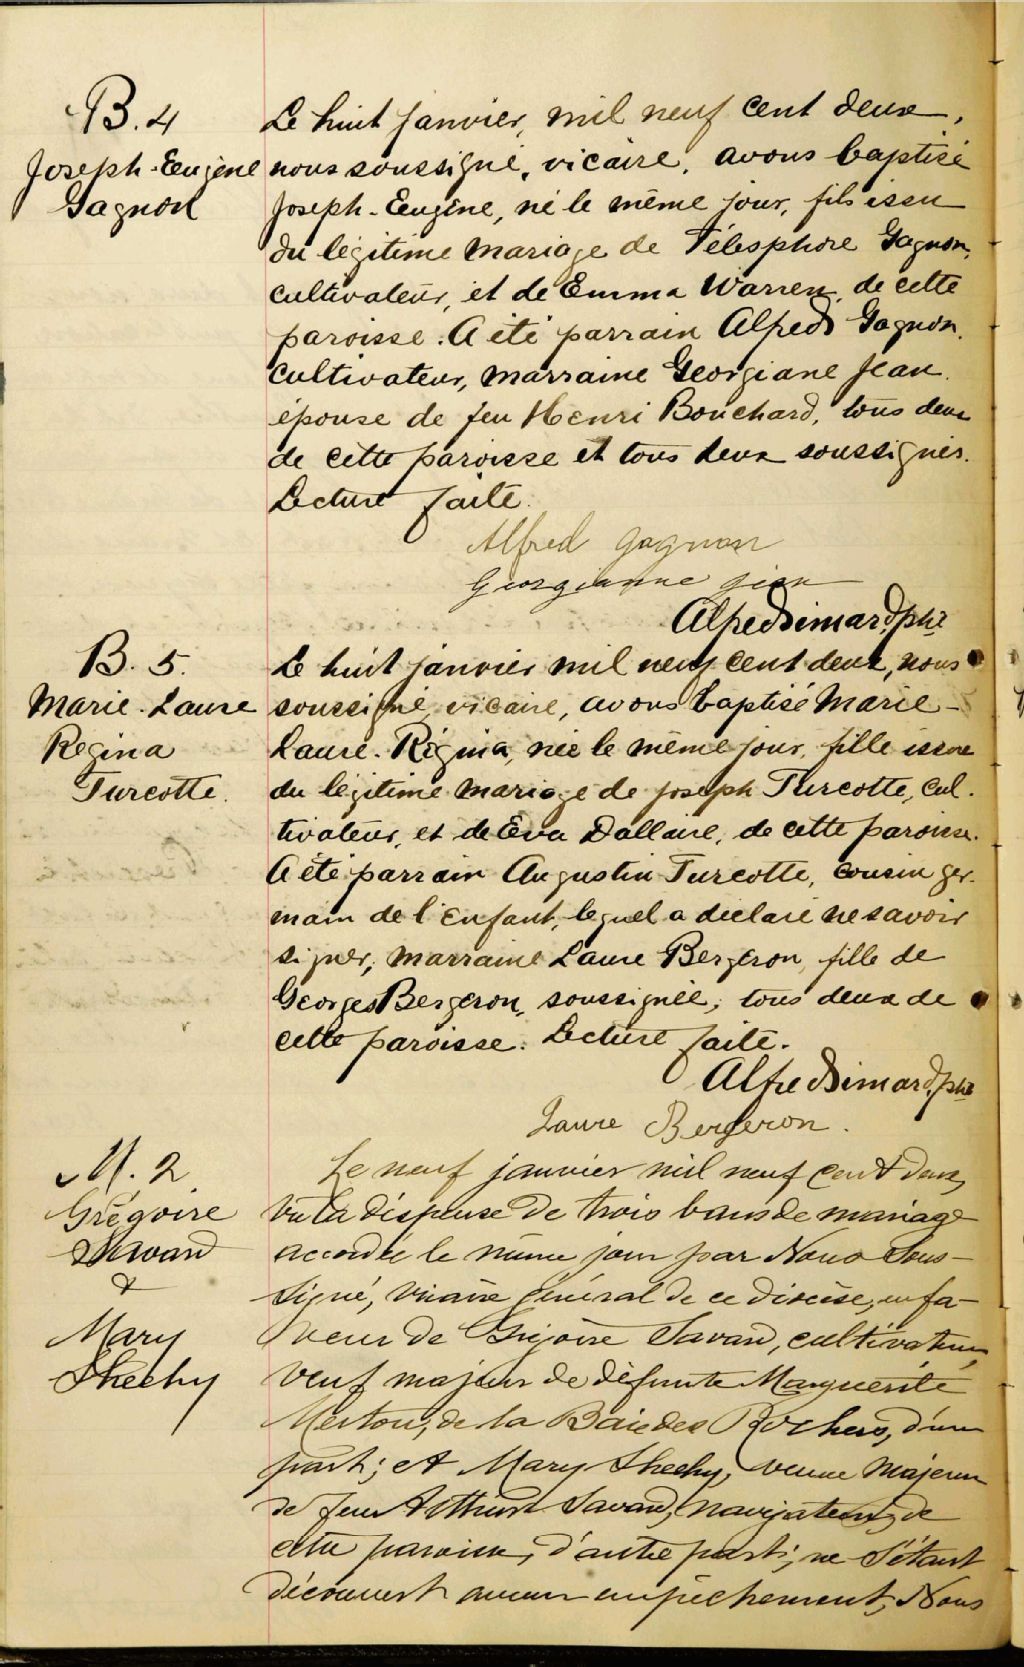 B. 4
Joseph-Eugène
Gagnon
Le huit janvier, mil neuf cent deux,
nous soussigné, vicaire, avons baptisé
Joseph-Eugène, né le même jour, fils issu
du légitime mariage de Télesphore Gagnon,
cultivateur, et de Emma Warren, de cette
paroisse. A été parrain Alfred Gagnon,
cultivateur, marraine Georgiane Jean,
épouse de feu Henri Bouchard, tous deux
de cette paroisse et tous deux soussignés.
Lecture faite.
Alfred Gagnon
Georgianne Jean
Alfred Simard, ptre
B. 5.
Marie-Laure
Regina
Turcotte.
Le huit janvier mil neuf cent deux, nous
soussigné, vicaire, avons baptisé Marie-
Laure-Régina, née le même jour, fille issue
du légitime mariage de Joseph Turcotte, cul-
tivateur, et de Eva Dallaire, de cette paroisse.
A été parrain Augustin Turcotte, cousin ger-
main de l'enfant, lequel a déclaré ne savoir
signer, marraine Laure Bergeron, fille de
Georges Bergeron, soussignée, tous deux de
cette paroisse. Lecture faite.
Alfred Simard, ptre
Laure Bergeron.
M. 2
Grégoire
Savard
&
Mary
Sheehy
Le neuf janvier mil neuf cent deux,
vu la dispense de trois bans de mariage
accordée le même jour par Nous Sous-
signé, Vicaire général de ce diocèse, en fa-
veur de Grégoire Savard, cultivateur,
veuf majeur de défunte Marguerite
de la Baie des Rochers, d'une
part; et Mary Sheehy, veuve majeure
de feu Arthur Savard, navigateur, de
cette paroisse, d'autre part; ne s'étant
découvert aucun empêchement, Nous